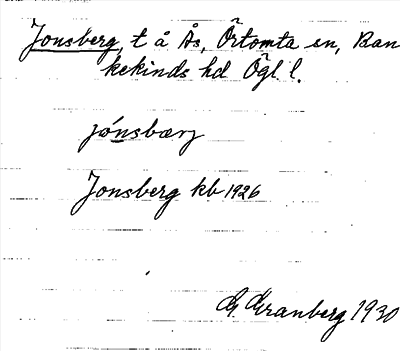 Jonsberg, t å Ås, Örtomta sn, Ban
kekinds hd Ögl l.
jónsbærj
Jonsberg kb 1926
G. Granberg 1930